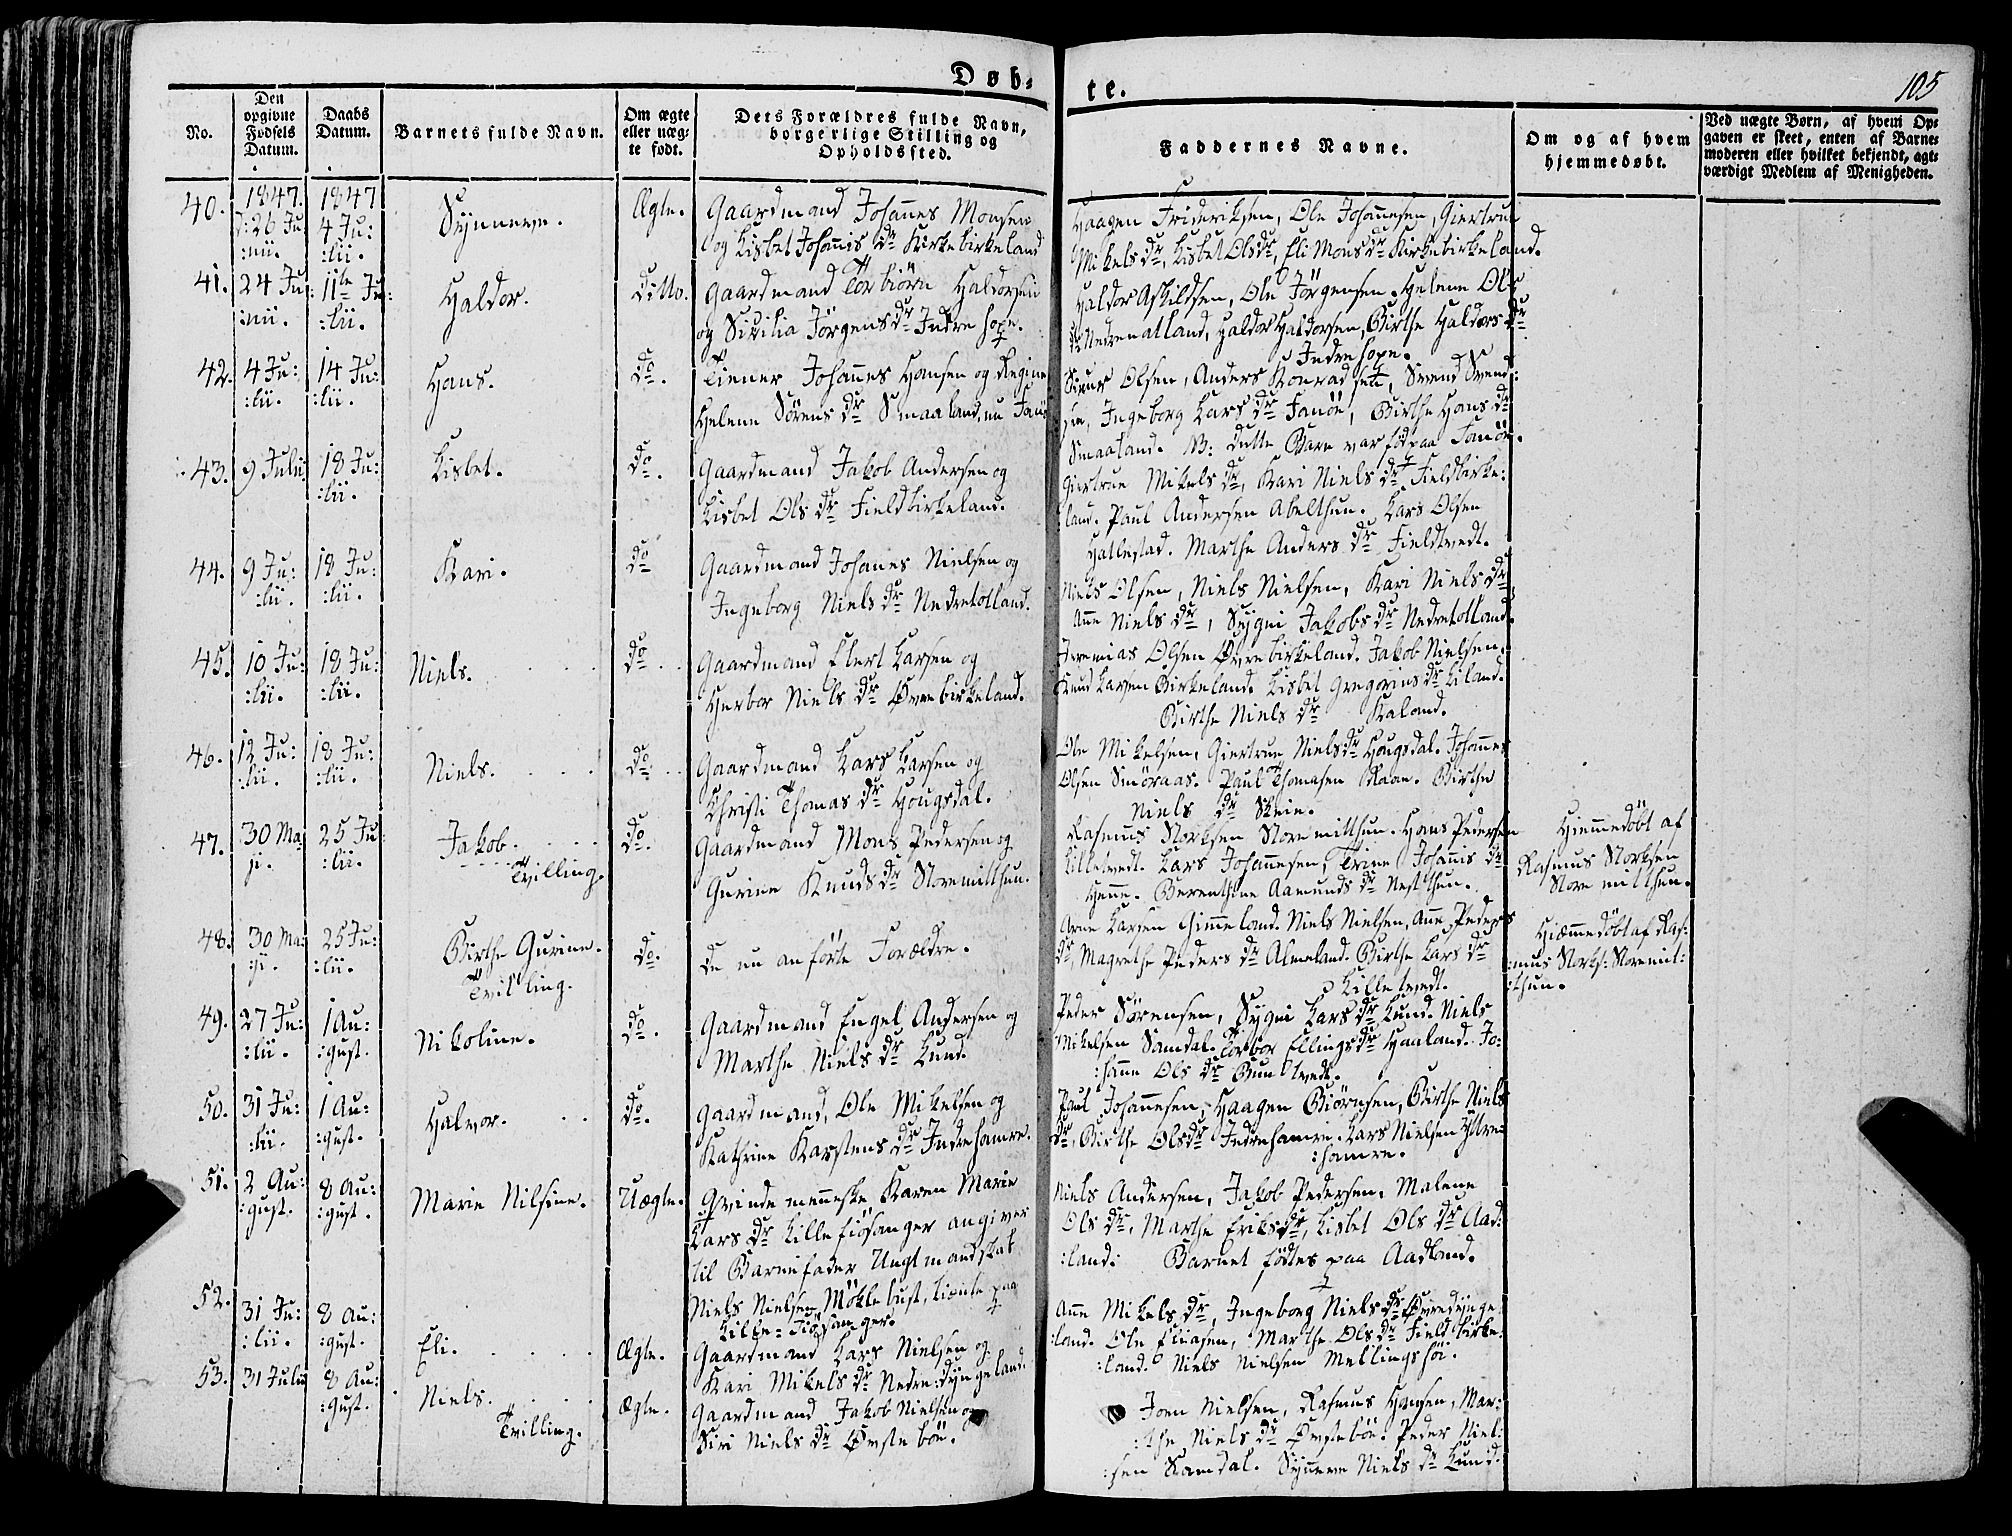 Døb-
te.
105
No.
Den
opgivne
Fødsels
Datum.
Daabs
Datum.
Barnets fulde Navn.
Om ægte
eller uæg-
te født.
Dets Forældres fulde Navn,
borgerlige Stilling og
Opholdssted.
Faddernes Navne.
Om og af hvem
hjemmedøbt.
Ved uægte Børn, af hvem Op-
gaven er skeet, enten af Barne-
moderen eller hvilket bekjendt, agt-
værdigt Medlem af Menigheden.
40.
1847.
26 Ju
:nii.
1847
4 Ju:
:lii.
Synneve.
Ægte.
Gaardmand Johannes Monsen
og Lisbet Johannis dr Kirkebirkeland
Haagen Frideriksen, Ole Johannesen, Giertrue
Mikels dr, Lisbet Olsdr, Eli Mons dr Kirkebirkeland.
41.
24 Ju
:nii.
11te Ju:
:lii.
Haldor.
Ditto.
Gaardmand Torbiørn Haldorsen
og Sivilia Jørgens dr Indre Hope.
Haldor Askildsen, Ole Jørgensen. Helene Ols
dr Nedreaatland, Haldor Haldorsen, Birthe Haldors dr
Indre Hope.
42.
4 Ju:
:lii.
14 Ju:
:lii.
Hans.
do.
Tiener Johannes Hansen og Regine
Helene Sørens dr Smaaland, nu Fanø
Siur Olsen, Anders Konradsen, Svend Svend:
sen, Ingeborg Lars dr Fanøe, Birthe Hans dr
Smaaland. NB: dette Barn var fød paa Fanøe.
43.
9 Julii
18 Ju:
:lii.
Lisbet.
do.
Gaardmand Jakob Andersen og
Lisbet Ols dr Fieldbirkeland.
Giertrue Mikels dr, Kari Niels dr Fieldbirke:
land. Paul Andersen Abelthun. Lars Olsen
Hatlestad. Marthe Anders dr Fieldtvedt.
44.
9 Ju:
:lii.
18 Ju:
:lii.
Kari.
do
Gaardmand Johanes Nielsen og
Ingeborg Niels dr Nedretotland.
Niels Olsen, Niels Nielsen, Kari Niels dr
Ane Niels dr, Sygni Jakobs dr Nedretotland.
45.
10 Ju:
:lii.
18 Ju:
:lii.
Niels.
do
Gaardmand Elert Larsen og
Herbor Niels dr Øvrebirkeland.
Jeremias Olsen Øvrebirkeland. Jakob Nielsen.
Knud Larsen Birkeland. Lisbet Gregorius dr Liland.
Birthe Niels dr Kaland.
46.
12 Ju:
:lii.
18 Ju:
:lii.
Niels.
do
Gaardmand Lars Larsen og
Christi Thomas dr Hougsdal.
Ole Mikelsen, Giertrue Nielsdr Hougsdal. Johannes
Olsen Smøraas. Paul Thomasen Raae. Birthe
Niels dr Skeie.
47.
30 Ma
ji.
25 Ju
:lii.
Jakob.
Tvilling.
do.
Gaardmand Mons Pedersen og
Gurine Knuds dr Storemilthun.
Rasmus Storksen Storemilthun. Hans Pedersen
Lilletvedt. Lars Johannesen, Trine Johannis dr
Henne. Berenthine Aamunds dr Nestthun.
Hiemmedøbt af
Rasmus Storksen
Storemilthun.
48.
30 Ma:
:ji.
25 Ju:
:lii.
Birthe Gurine.
Tvilling.
do.
de nu anførte Forældre.
Arne Larsen Gimmeland. Niels Nielsen, Ane Peders
dr, Magrethe Peders dr Almeland. Birthe Lars dr
Lilletvedt.
Hiemmedøbt af Ras:
:mus Storks: Storemil:
:thun.
49.
27 Ju:
:lii.
1 Au:
:gust.
Nikoline.
do.
Gaardmand Engel Andersen og
Marthe Niels dr Lund.
Peder Sørensen, Sygni Lars dr Lund. Niels
Mikelsen Samdal. Torbor Ellings dr Haaland. Jo:
:hanne Ols dr Buntvedt.
50.
31 Ju:
:lii.
1 Au:
:gust.
Halvor.
do.
Gaardmand, Ole Mikelsen og
Kathrine Karstens dr Indrehamre.
Paul Johannesen, Haagen Biørnsen, Birthe Niels
dr, Birthe Olsdr Indrehamre. Lars Nielsen Ytre:
:hamre.
51.
2 Au:
:gust.
8 Au:
:gust.
Marie Nilsine.
Uægte.
Qvindemenneske Karen Marie
Lars dr Lillefiøsanger angiver
til Barnefader Ungkarlmand
Niels Nielsen Møklebust, tiente paa
Lille-Fiøsanger.
Niels Andersen, Jakob Pedersen, Malene
Ols dr, Marthe Eriks dr, Lisbet Ols dr Aad:
:land. Barnet fødtes paa Aadland.
52.
31 Ju:
:lii.
8 Au:
:gust.
Eli.
Ægte.
Gaardmand Lars Nielsen og
Kari Mikels dr Nedre:dyngeland.
Ane Mikels dr, Ingeborg Niels dr Øvredynge
:land. Ole Eliasen, Marthe Ols dr Fieldbirke:
:land. Niels Nielsen Mellingshøi.
53.
31 Julii
8 Au:
:gust.
Niels.
Tvilling.
Ægte.
Gaardmand Jakob Nielsen og
Siri Niels dr Øvstebøe.
Joen Nielsen, Rasmus Hansen, Mar:
:the Niels dr Øvstebøe. Peder Niel:
:sen Samdal. Synneve Niels dr Lund.